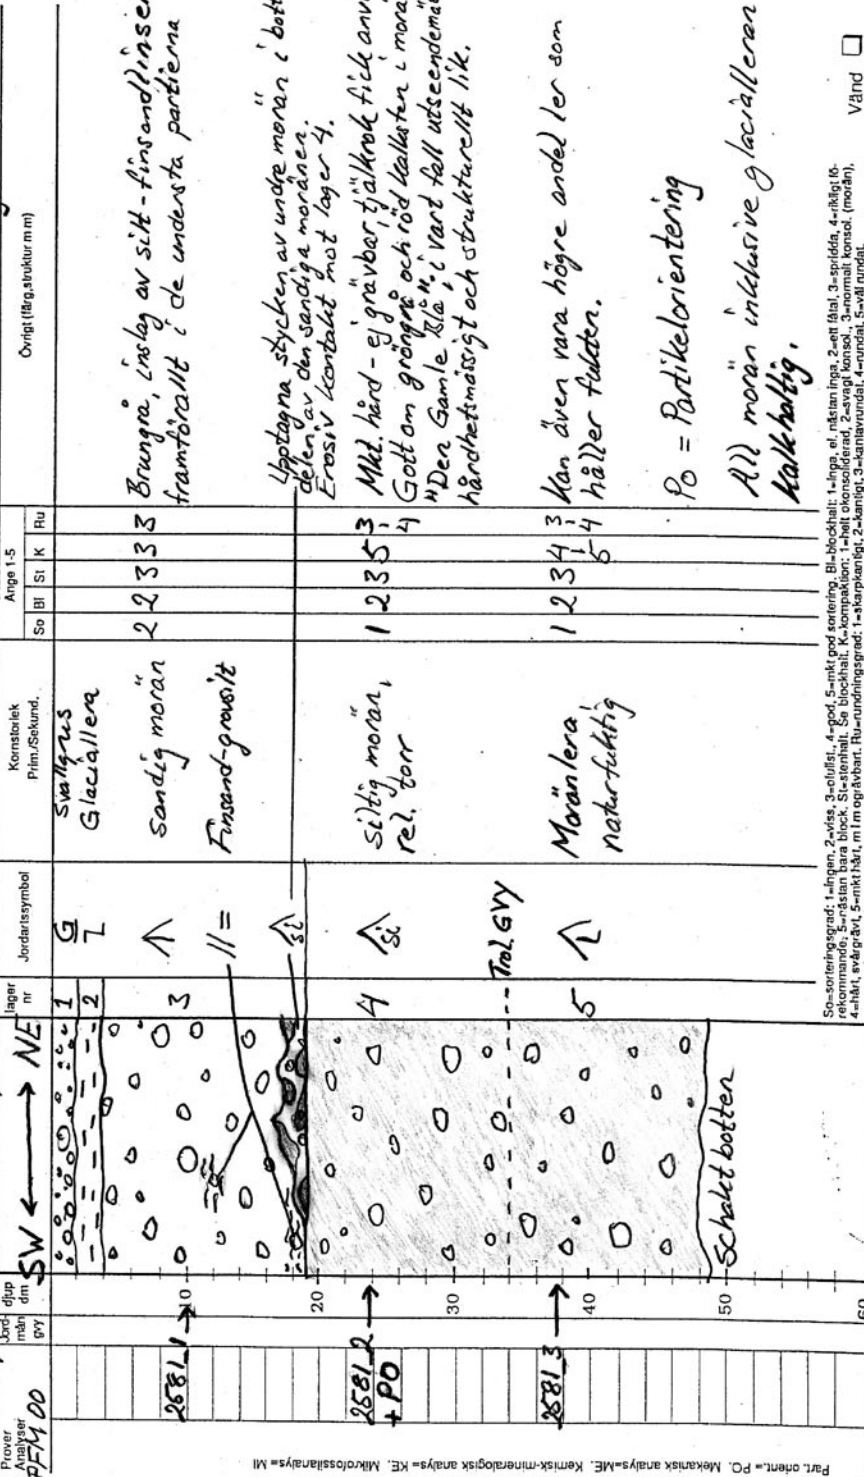 Prover
Analyser
PFM 00
Jord-
mån
gvy
djup
dm
SW ← → NE
lager
nr
Jordartssymbol
Kornstorlek
Prim./Sekund.
Ange 1-5
So Bl St K Ru
Övrigt (färg,struktur m m)
1 G Svallgrus
2 L Glaciallera
3 Sandig morän 2 2 3 3 3 Brungrå, inslag av silt-finsandlinser
framförallt i de understa partierna
// = Finsand-grovsilt
si
Upptagna stycken av undre morän i
delen av den sandiga moränen.
Erosiv kontakt mot lager 4.
4 si Siltig morän, 1 2 3 5 3-4 Mkt. hård - ej grävbar, tjälkrok fick
rel. torr
Gott om gröngrå och röd kalksten i
"Den Gamle Blå". i vart fall
hårdhetsmässigt och strukturellt lik.
Trol. GVY
5 L Moränlera, 1 2 3 4-5 3-4 Kan även vara högre andel ler som
naturfuktig håller fukten.
Po = Partikelorientering
All morän inklusive glacialleran
kalkhaltig.
10
20
30
40
50
60
2581_1 →
2581_2 →
+ PO
2581_3 →
Schaktbotten
Part. orient.= PO. Mekanisk analys=ME. Kemisk-mineralogisk analys= KE. Mikrofossilanalys= MI
So=sorteringsgrad: 1=ingen, 2=viss, 3=ofullst., 4=god, 5=mkt god sortering. Bl=blockhalt: 1=inga, el. nästan inga, 2=ett fåtal, 3=spridda, 4=rikligt fö-
rekommande; 5=nästan bara block. St=stenhalt. Se blockhalt. K=kompaktion: 1=helt okonsoliderad, 2=svagt konsol., 3=normalt konsol. (morän),
4=hårt, svårgrävt, 5=mkt hårt, m l m ogrävbart. Ru=rundningsgrad: 1=skarpkantigt, 2=kantigt, 3=kantavrundat, 4=rundat, 5=väl rundat.
Vänd